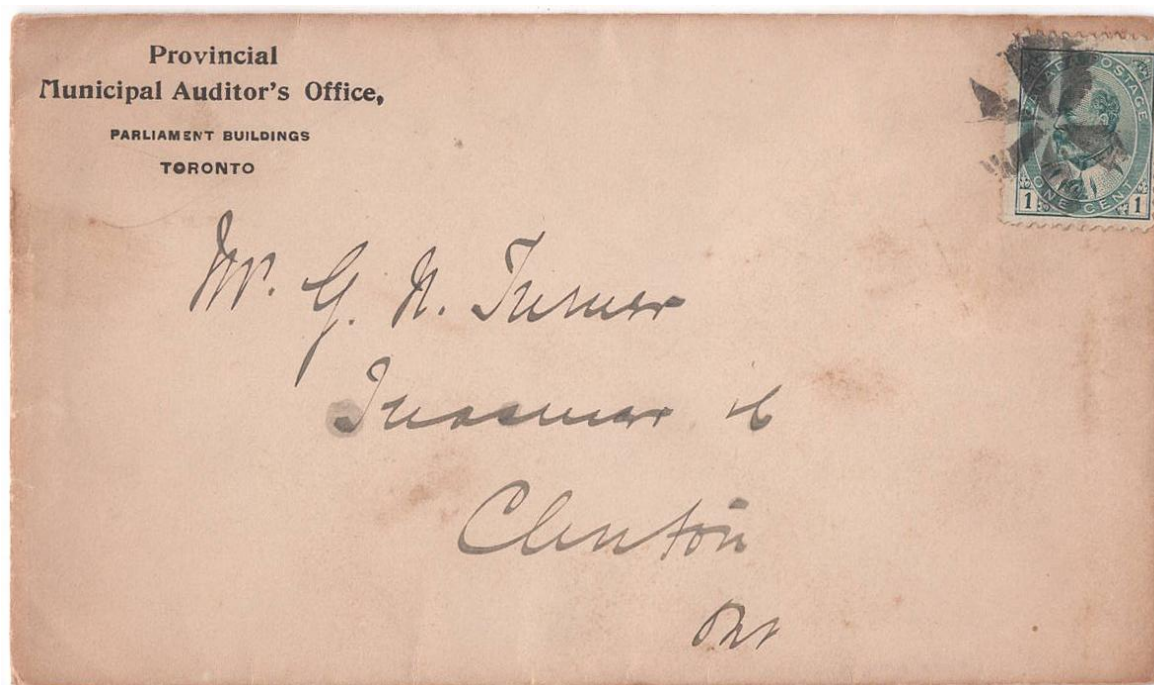 Provincial
Municipal Auditor's Office,
PARLIAMENT BUILDINGS
TORONTO
CANADA POSTAGE
ONE CENT
1 1
Mr. G. N. Turner
Treasurer
Clinton
Ont